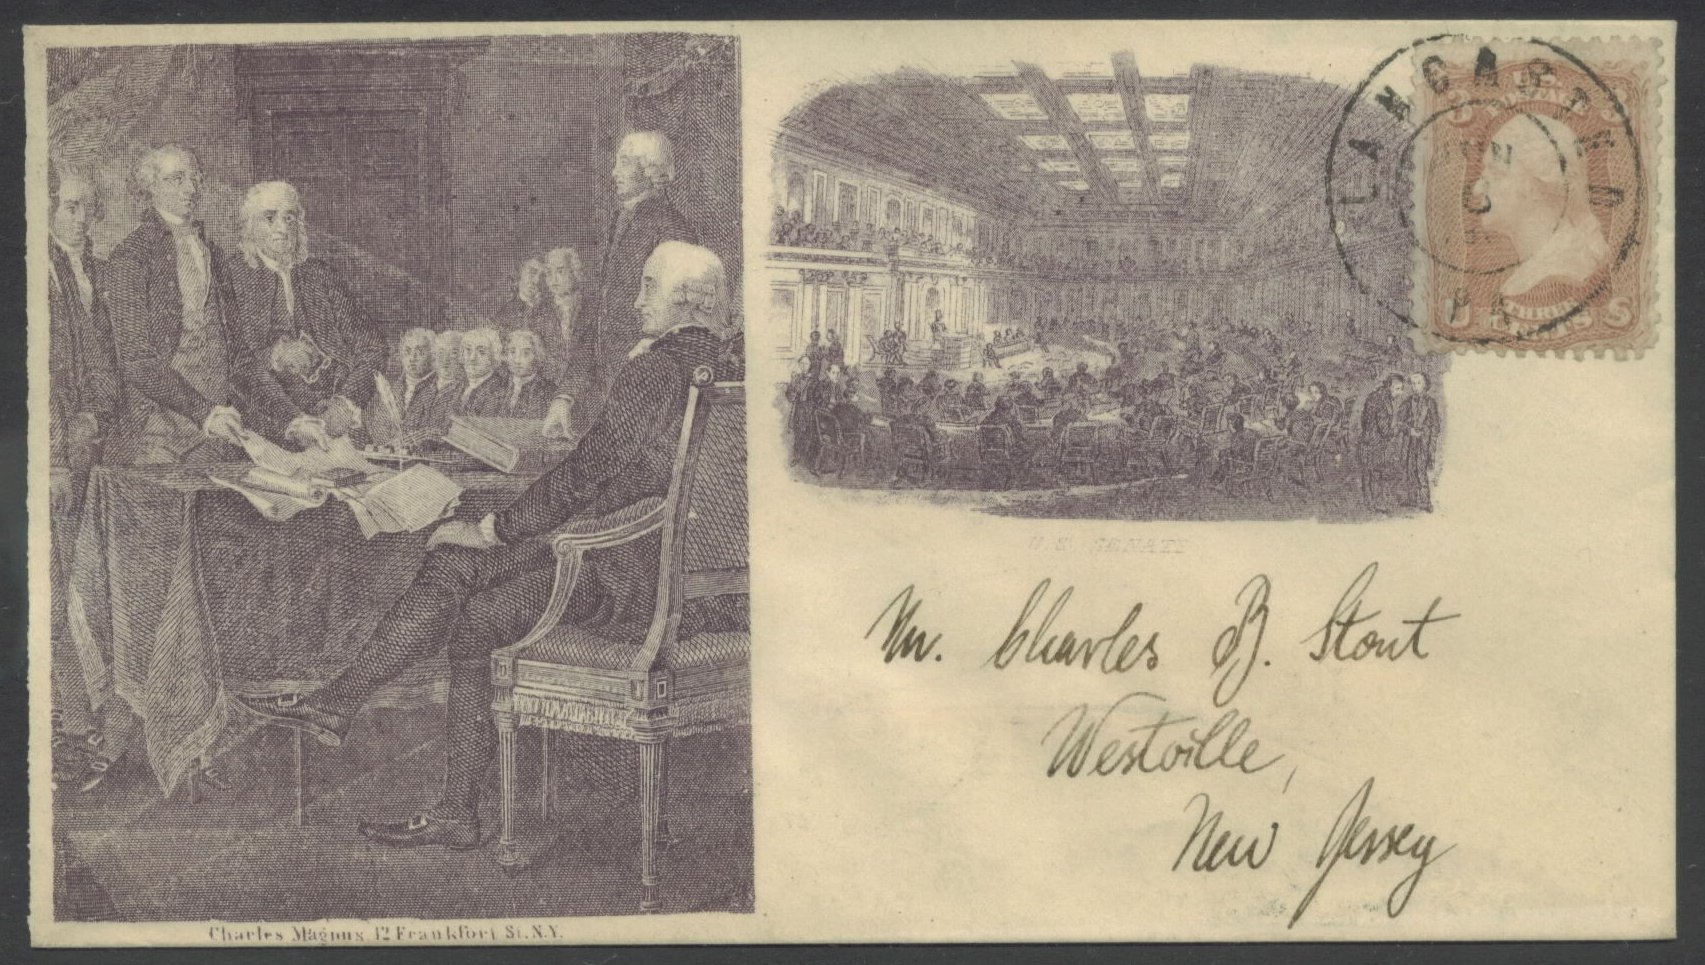 LANCASTER
JUN
PA.
U.S. SENATE
Mr. Charles B. Stout
Westville,
New Jersey
Charles Magnus 12 Frankfort St. N.Y.